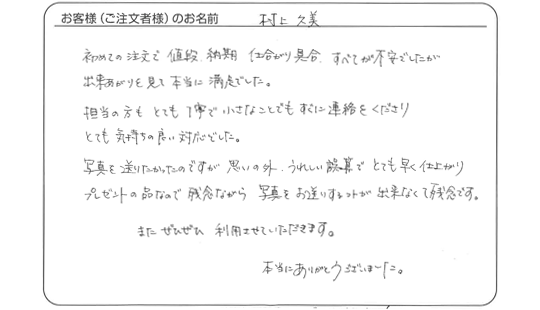 お客様(ご注文者様)のお名前 村上久美
初めての注文で 値段、納期 仕合がり具合、すべてが不安でしたが
出来あがりを見て本当に満足でした。
担当の方も とても丁寧で小さなことでもすぐに連絡をくださり
とても気持ちの良い対応でした。
写真を送りたかったのですが 思いの外、うれしい誤算でとても早く仕上がり
プレゼントの品なので残念ながら 写真をお送りすることが出来なくて残念です。
またぜひぜひ 利用させていただきます。
本当にありがとうございました。